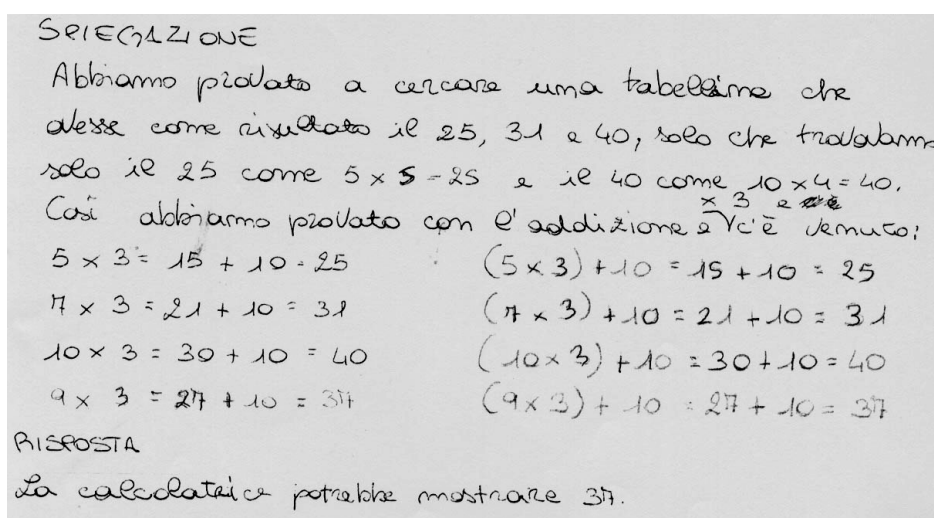 SPIEGAZIONE
Abbiamo provato a cercare una tabellina che
desse come risultato il 25, 31 e 40, solo che trovavamo
solo il 25 come 5 x 5 = 25 e il 40 come 10 x 4 = 40.
x 3 e
Così abbiamo provato con l'addizione e c'è venuto:
5 x 3 = 15 + 10 = 25 (5 x 3) + 10 = 15 + 10 = 25
7 x 3 = 21 + 10 = 31 (7 x 3) + 10 = 21 + 10 = 31
10 x 3 = 30 + 10 = 40 (10 x 3) + 10 = 30 + 10 = 40
9 x 3 = 27 + 10 = 37 (9 x 3) + 10 = 27 + 10 = 37
RISPOSTA
La calcolatrice potrebbe mostrare 37.